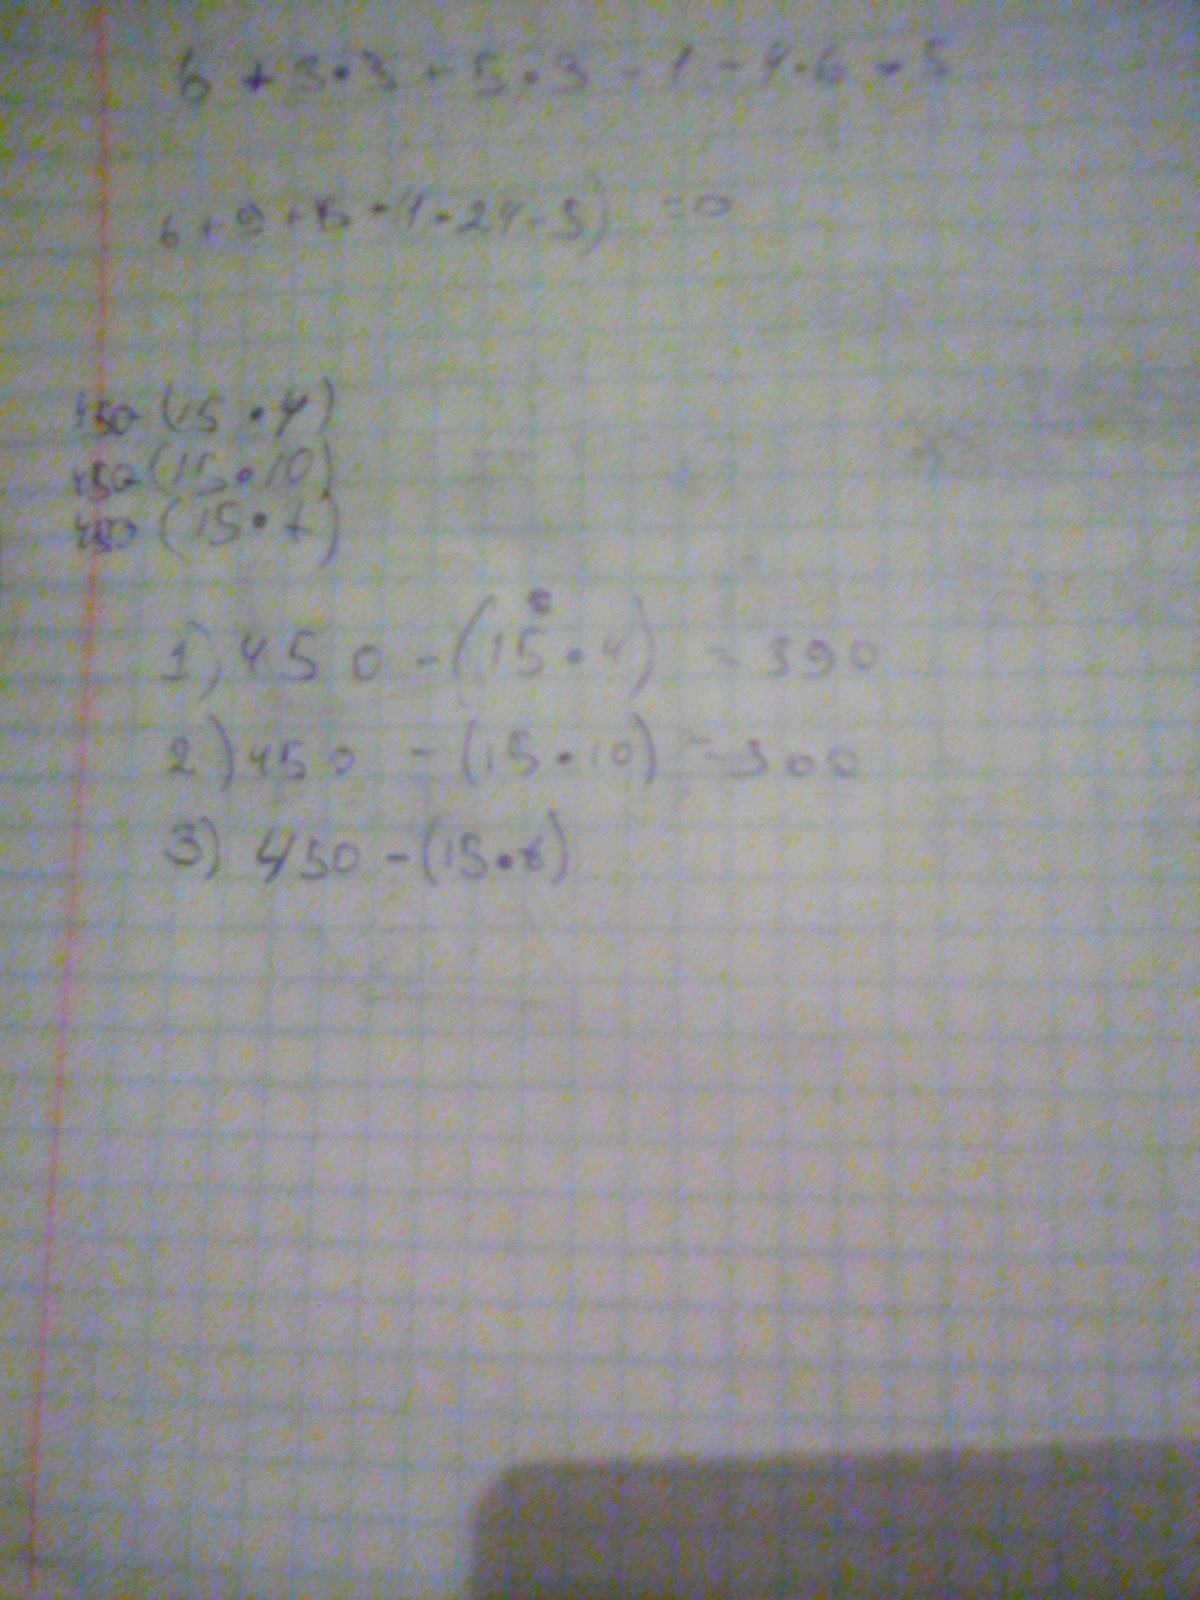 6 + 3 • 3 + 5 • 3 - 1 - 4 • 6 - 5
6 + 9 + 15 - (1 - 24 - 5) = 0
450 (15 • 4)
450 (15 • 10)
450 (15 •
1) 450 - (15 • 4) = 390
2) 450 - (15 • 10) = 300
3) 450 - (15 •